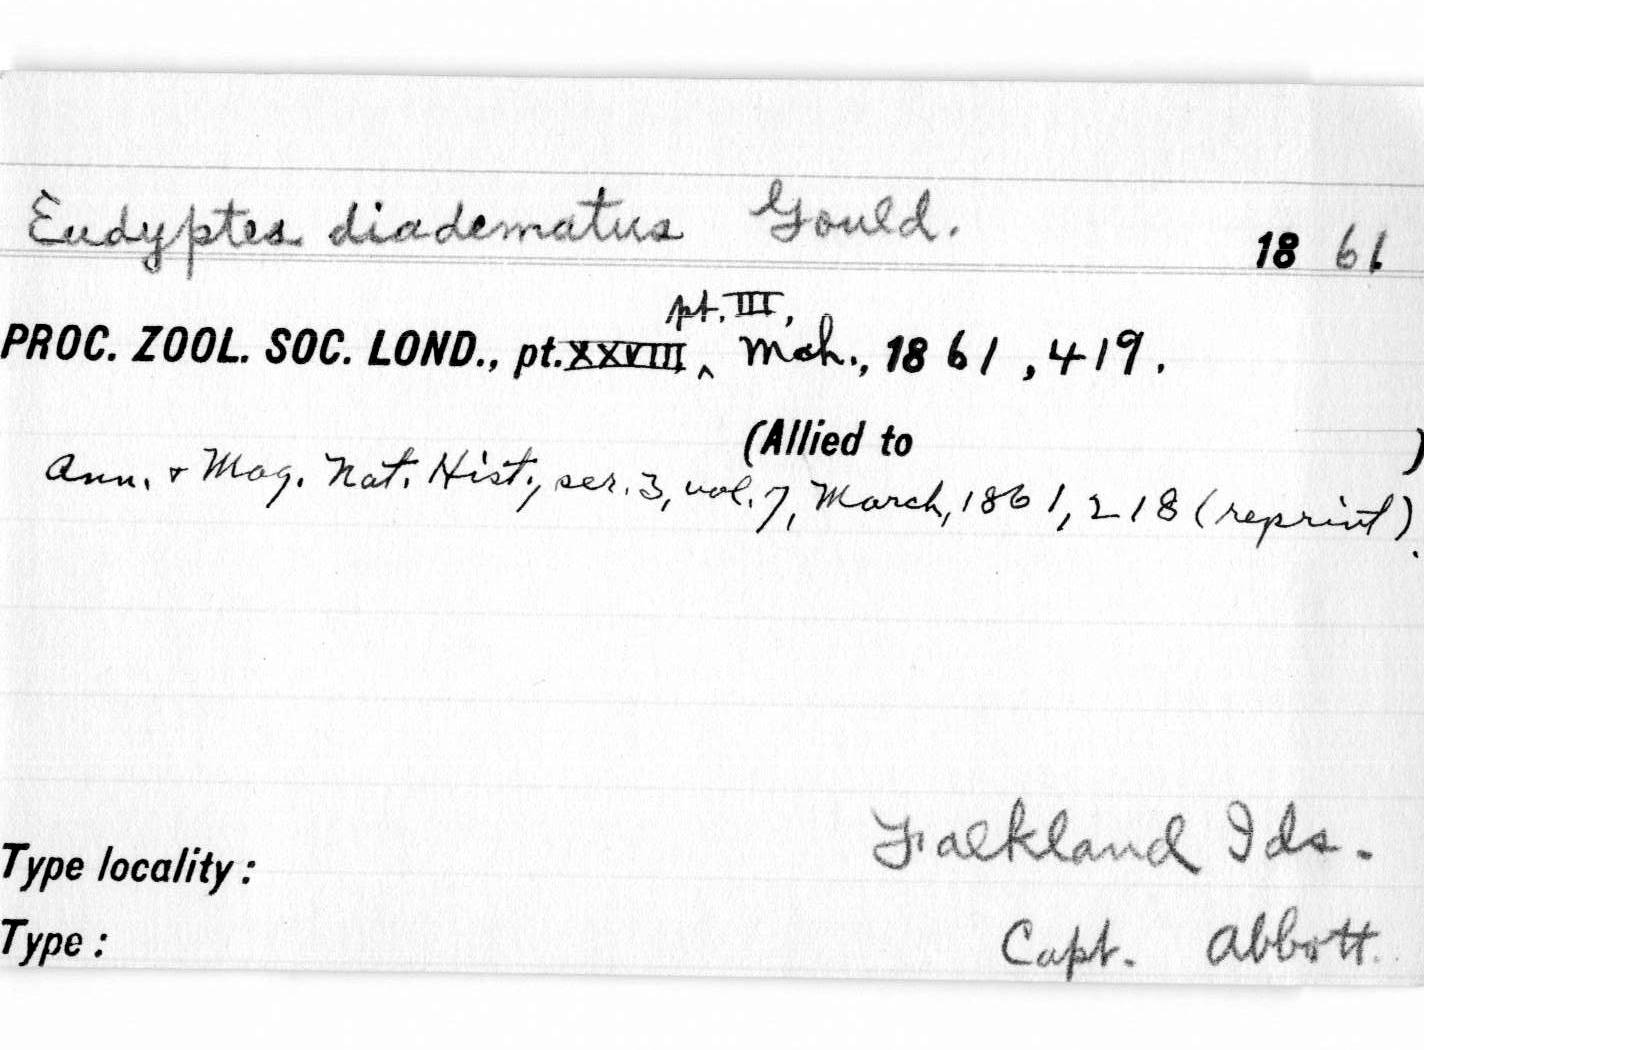 Eudyptes diadematus Gould. 1861.
pt. III,
PROC. ZOOL. SOC. LOND., pt. XXVIII ^ Mch., 1861, 419.
(Allied to )
Ann. & Mag. Nat. Hist., ser. 3, vol. 7, March, 1861, 218 (reprint).
Type locality: Falkland Ids.
Type: Capt. Abbott.